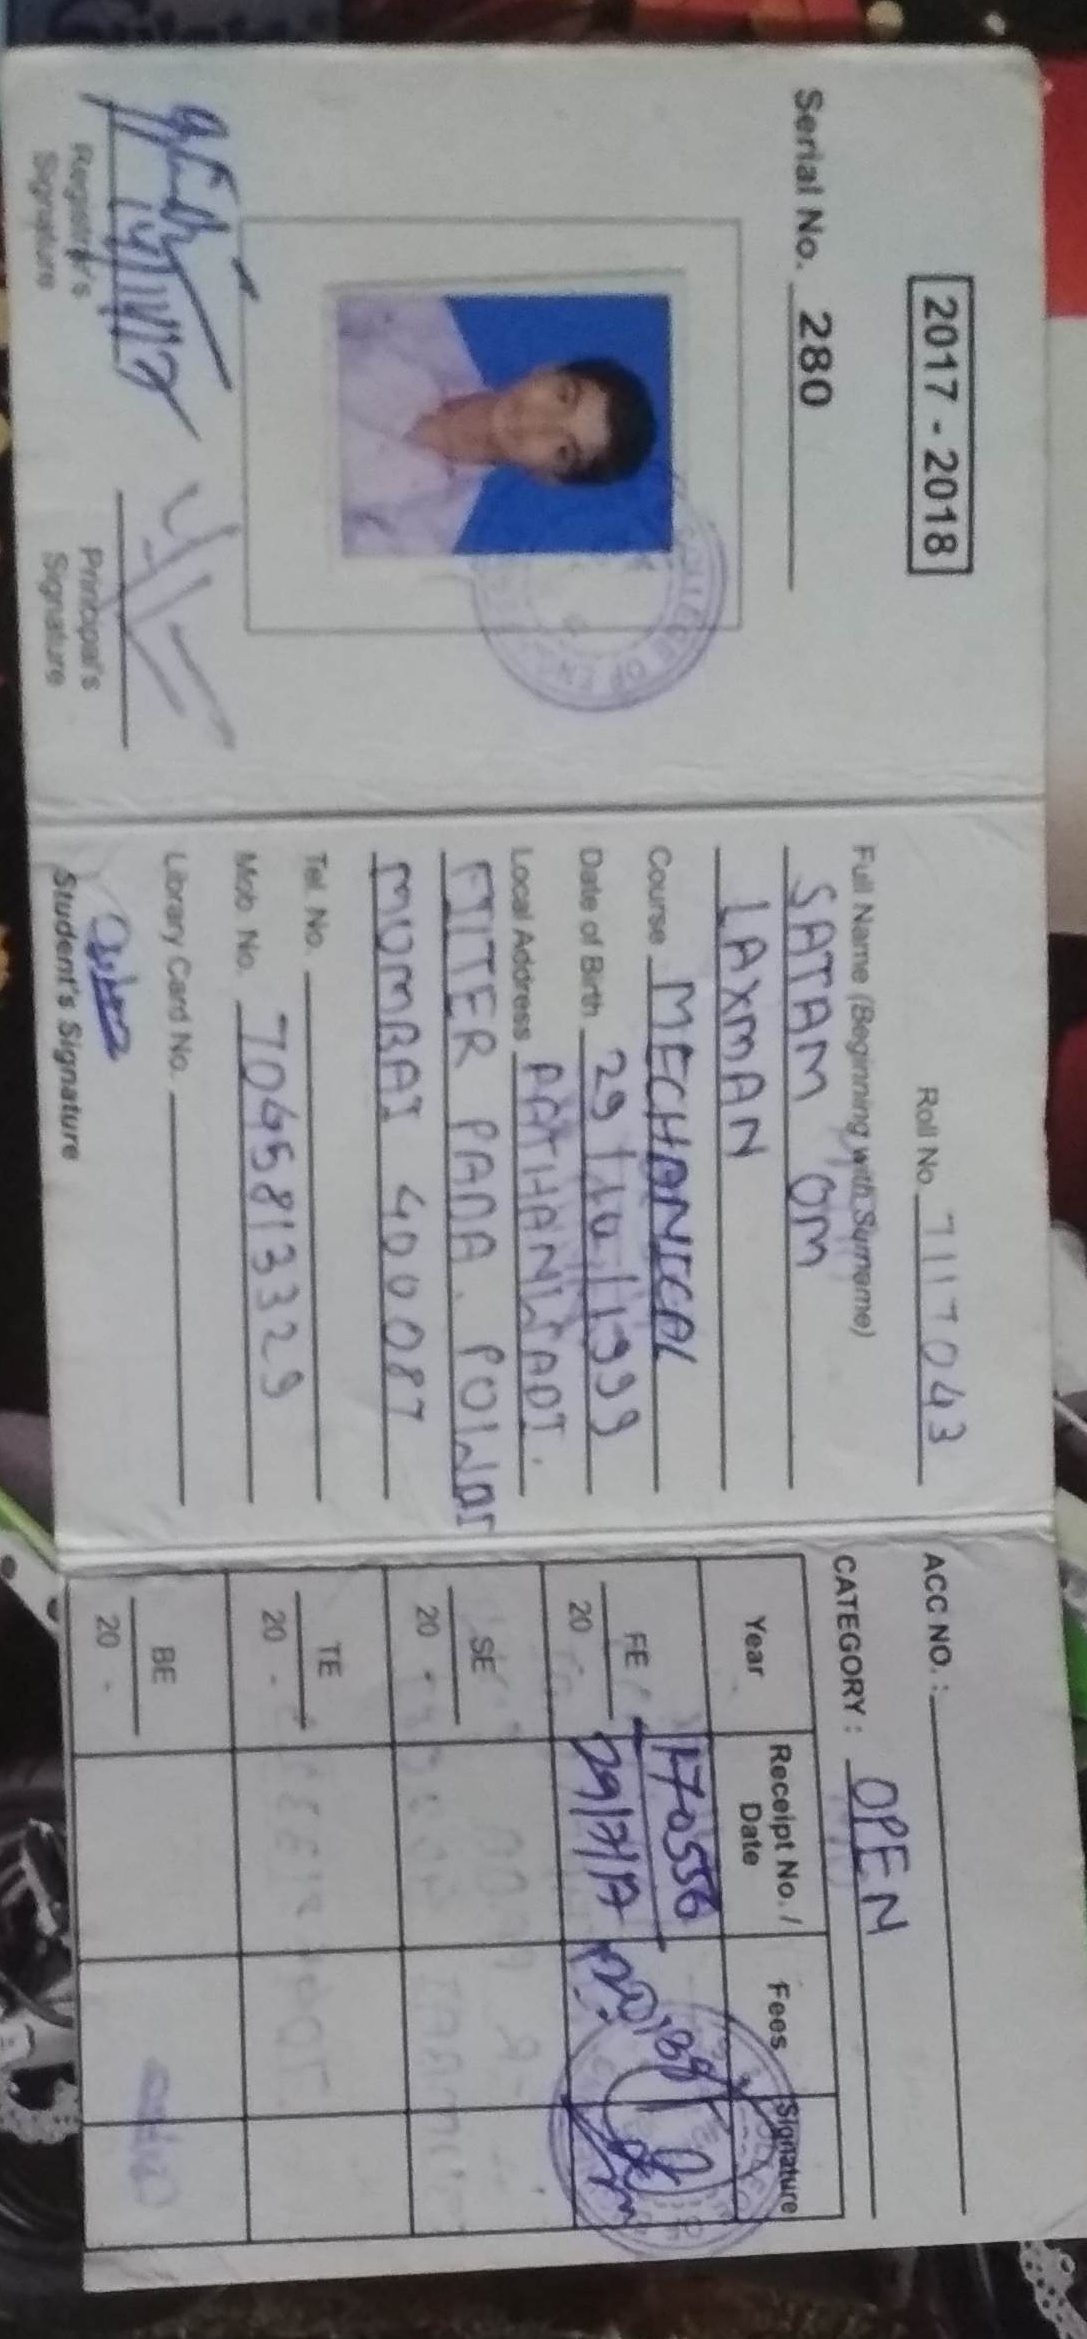 2017 - 2018
Serial No. 280
COLLEGE OF ENG
Registrar's
Signature
Principal's
Signature
Roll No. 7117043
Full Name (Beginning with Surname)
SATAM OM
LAXMAN
Course MECHANICAL
Date of Birth 29/10/1999
Local Address PATHANWADI.
MUMBAI 400087
Tel. No.
Mob. No. 7045813329
Library Card No.
Student's Signature
ACC NO. :
CATEGORY : OPEN
Year Receipt No. / Date Fees Signature
FE 20 170556 29/7/17
SE 20
TE 20
BE 20